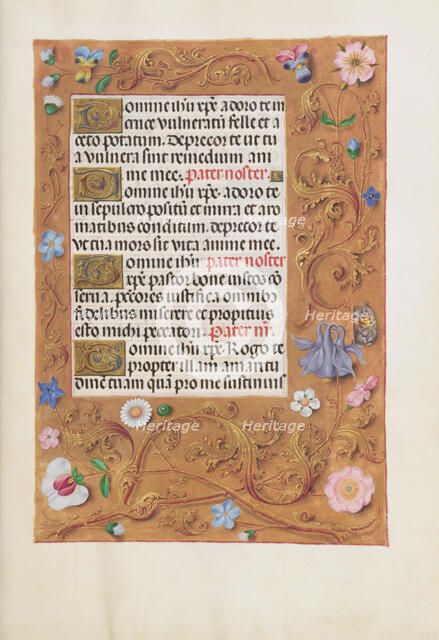 Domine ihu xpe adoro te in
cruce vulneratum felle et a
ceto potatum. Deprecor te ut tu
a vulnera sint remedium ani
me mee. Pater noster.
Domine ihu xpe. adoro te
in sepulcro positum et mirra et aro
matibus conditum. deprecor te
ut tua mors sit vita anime mee.
Domine ihu pater noster
xpe pastor bone iustos con
serua. peccores iustifica omnibus
fidelibus miserere et propitius
esto michi peccatori. Pater nr.
Domine ihu xpe. Rogo te
propter illam amaritu
dinem tuam quam pro me sustinuisti
Heritage
Heritage
Heritage
Heritage
Heritage
Heritage